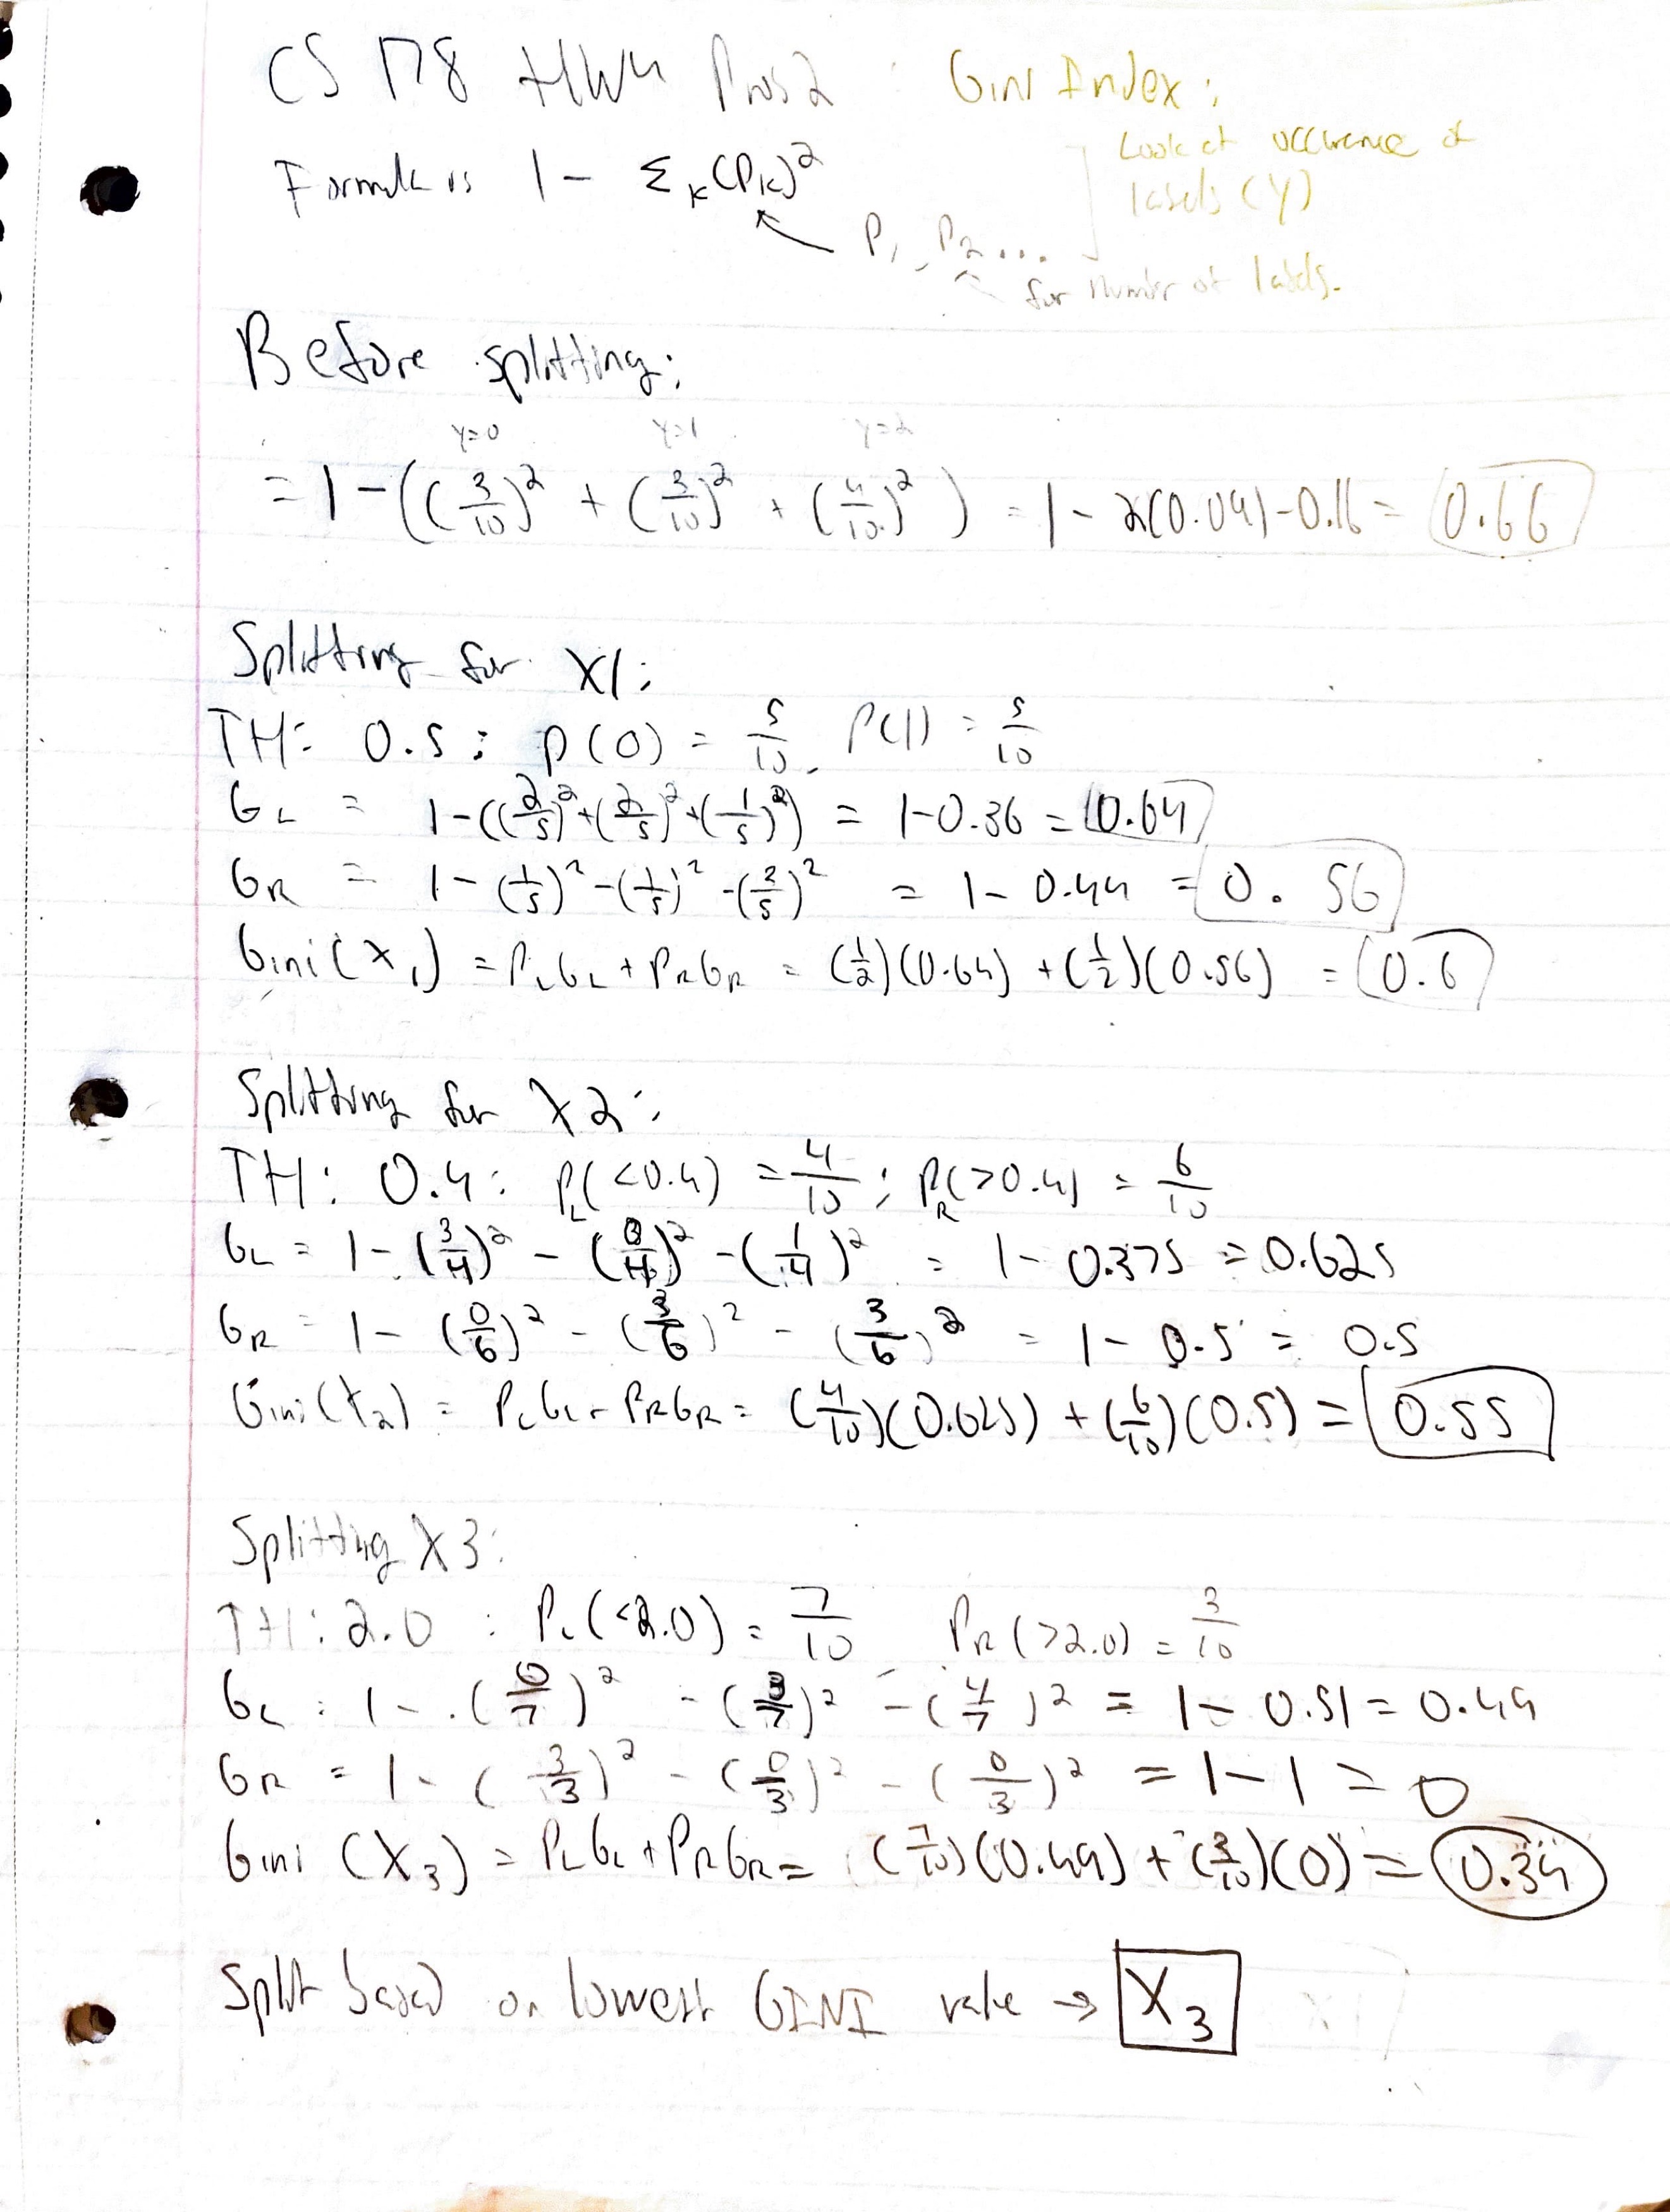 CS 178 HW4 Prob2 : Gini Index:
Formula is 1 - Σₖ(Pₖ)²
Look at occurence of
labels (Y)
P₁, P₂...
for number of labels.
Before splitting:
y=0 y=1 y=2
= 1 - ((3/10)² + (3/10)² + (4/10)²) = 1 - 2(0.09) - 0.16 = 0.66
Splitting for X1:
TH: 0.5: P(0) = 5/10, P(1) = 5/10
G_L = 1-((2/5)²+(2/5)²+(1/5)²) = 1-0.36 = 0.64
G_R = 1-(1/5)²-(1/5)²-(3/5)² = 1-0.44 = 0.56
Gini(X₁) = P_L G_L + P_R G_R = (1/2)(0.64) + (1/2)(0.56) = 0.6
Splitting for X2:
TH: 0.4: P_L(<0.4) = 4/10; P_R(>0.4) = 6/10
G_L = 1-(3/4)² - (0/4)² - (1/4)² = 1 - 0.375 = 0.625
G_R = 1 - (0/6)² - (3/6)² - (3/6)² = 1 - 0.5 = 0.5
Gini(X₂) = P_L G_L + P_R G_R = (4/10)(0.625) + (6/10)(0.5) = 0.55
Splitting X3:
TH: 2.0 : P_L(<2.0) = 7/10 P_R(>2.0) = 3/10
G_L : 1 - (0/7)² - (3/7)² - (4/7)² = 1 - 0.51 = 0.49
G_R = 1 - (3/3)² - (0/3)² - (0/3)² = 1-1 = 0
Gini (X₃) = P_L G_L + P_R G_R = (7/10)(0.49) + (3/10)(0) = 0.34
Split based on lowest GINI value → X₃